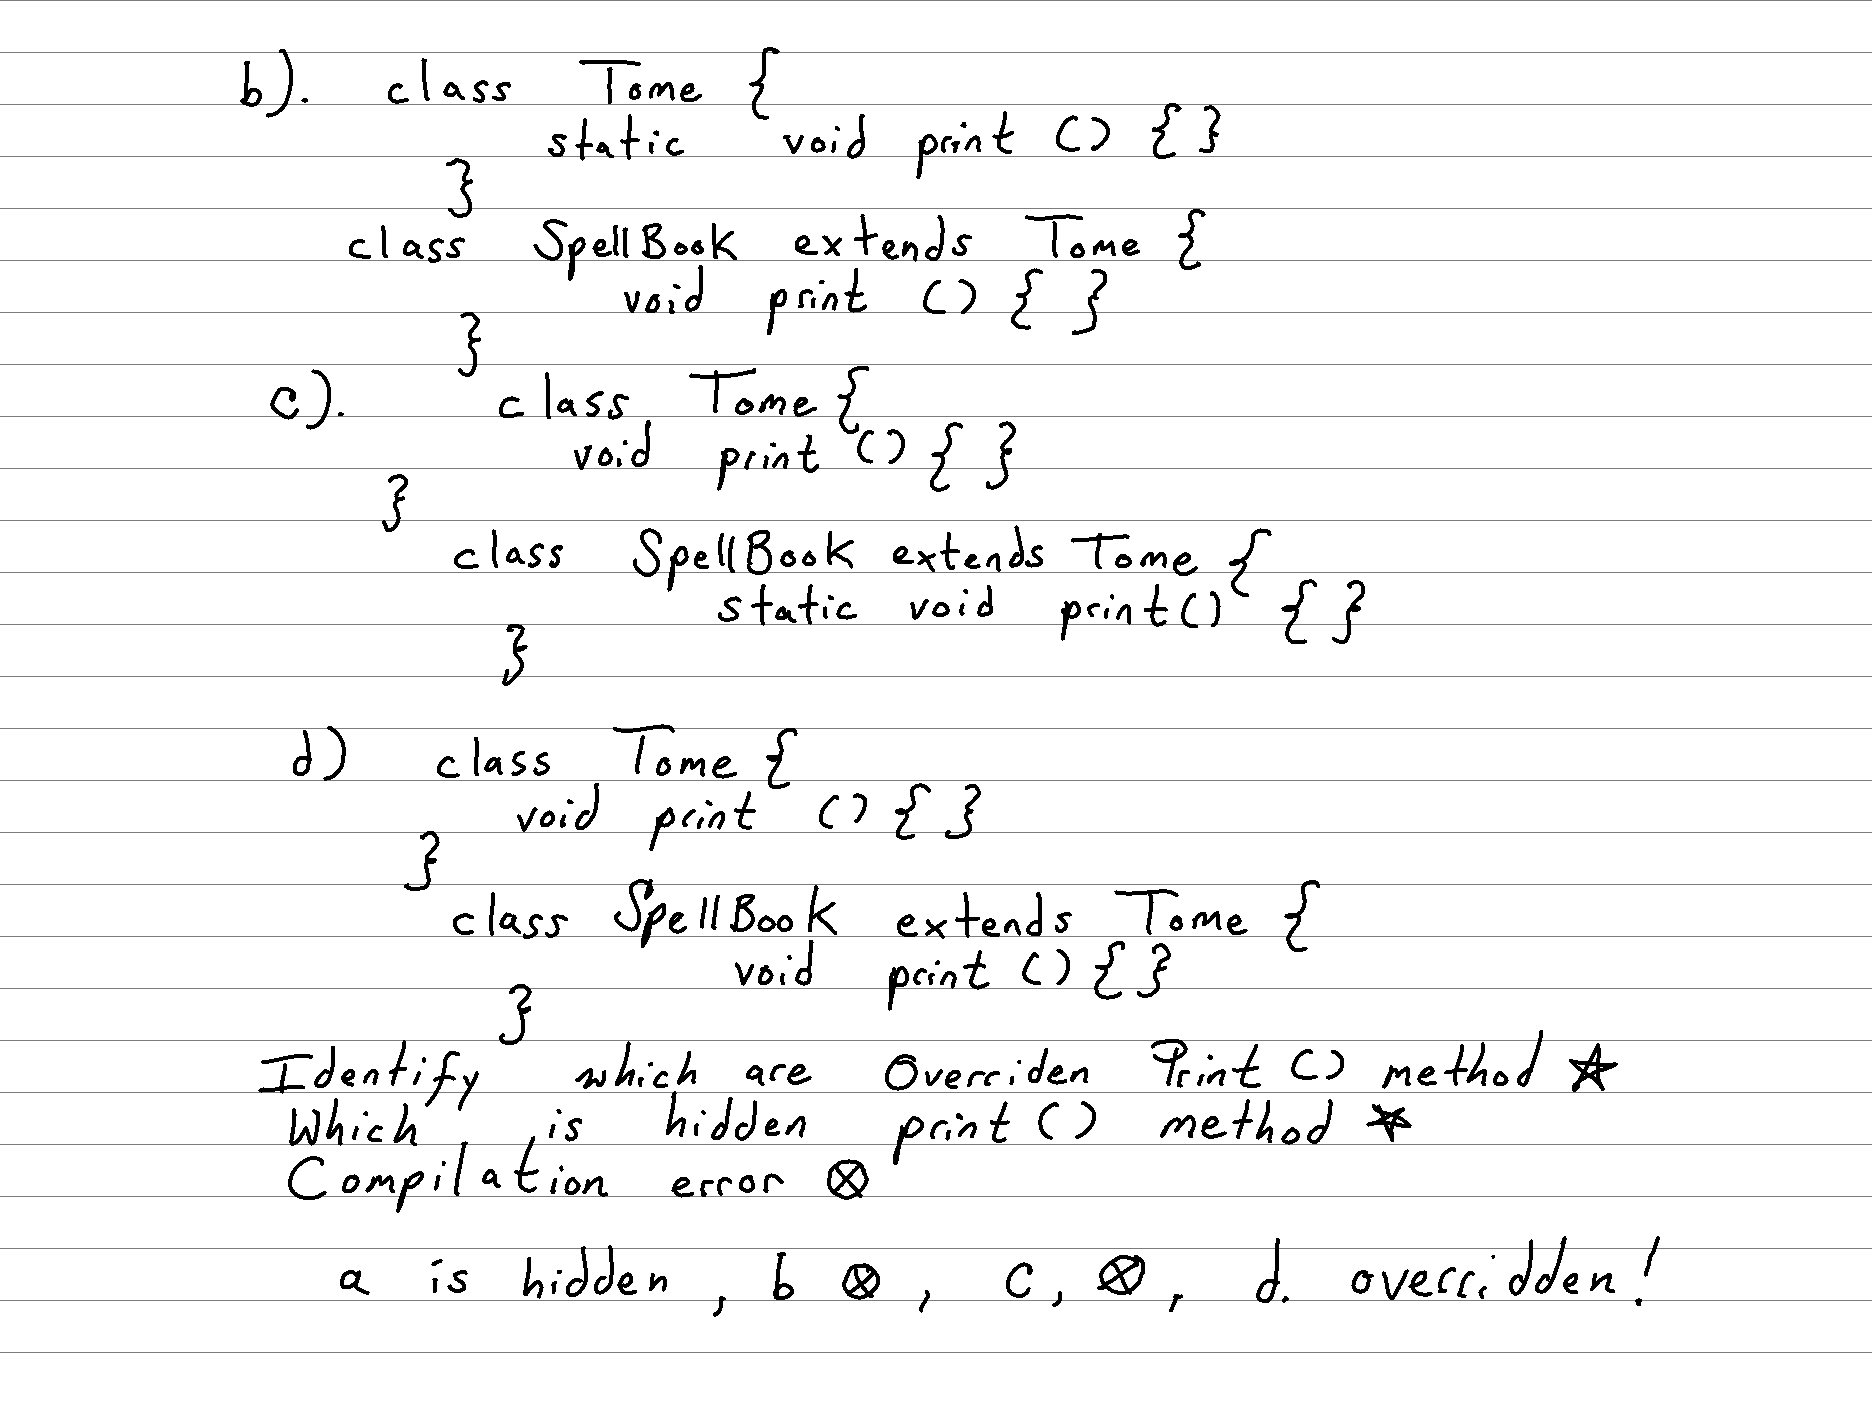 b). class Tome {
static void print () { }
}
class SpellBook extends Tome {
void print () { }
}
c). class Tome {
void print () { }
}
class SpellBook extends Tome {
static void print() { }
}
d) class Tome {
void print () { }
}
class SpellBook extends Tome {
void print () { }
}
Identify which are Overriden Print () method ☆
Which is hidden print () method ☆
Compilation error ⊗
a is hidden, b ⊗, c, ⊗, d. overridden!